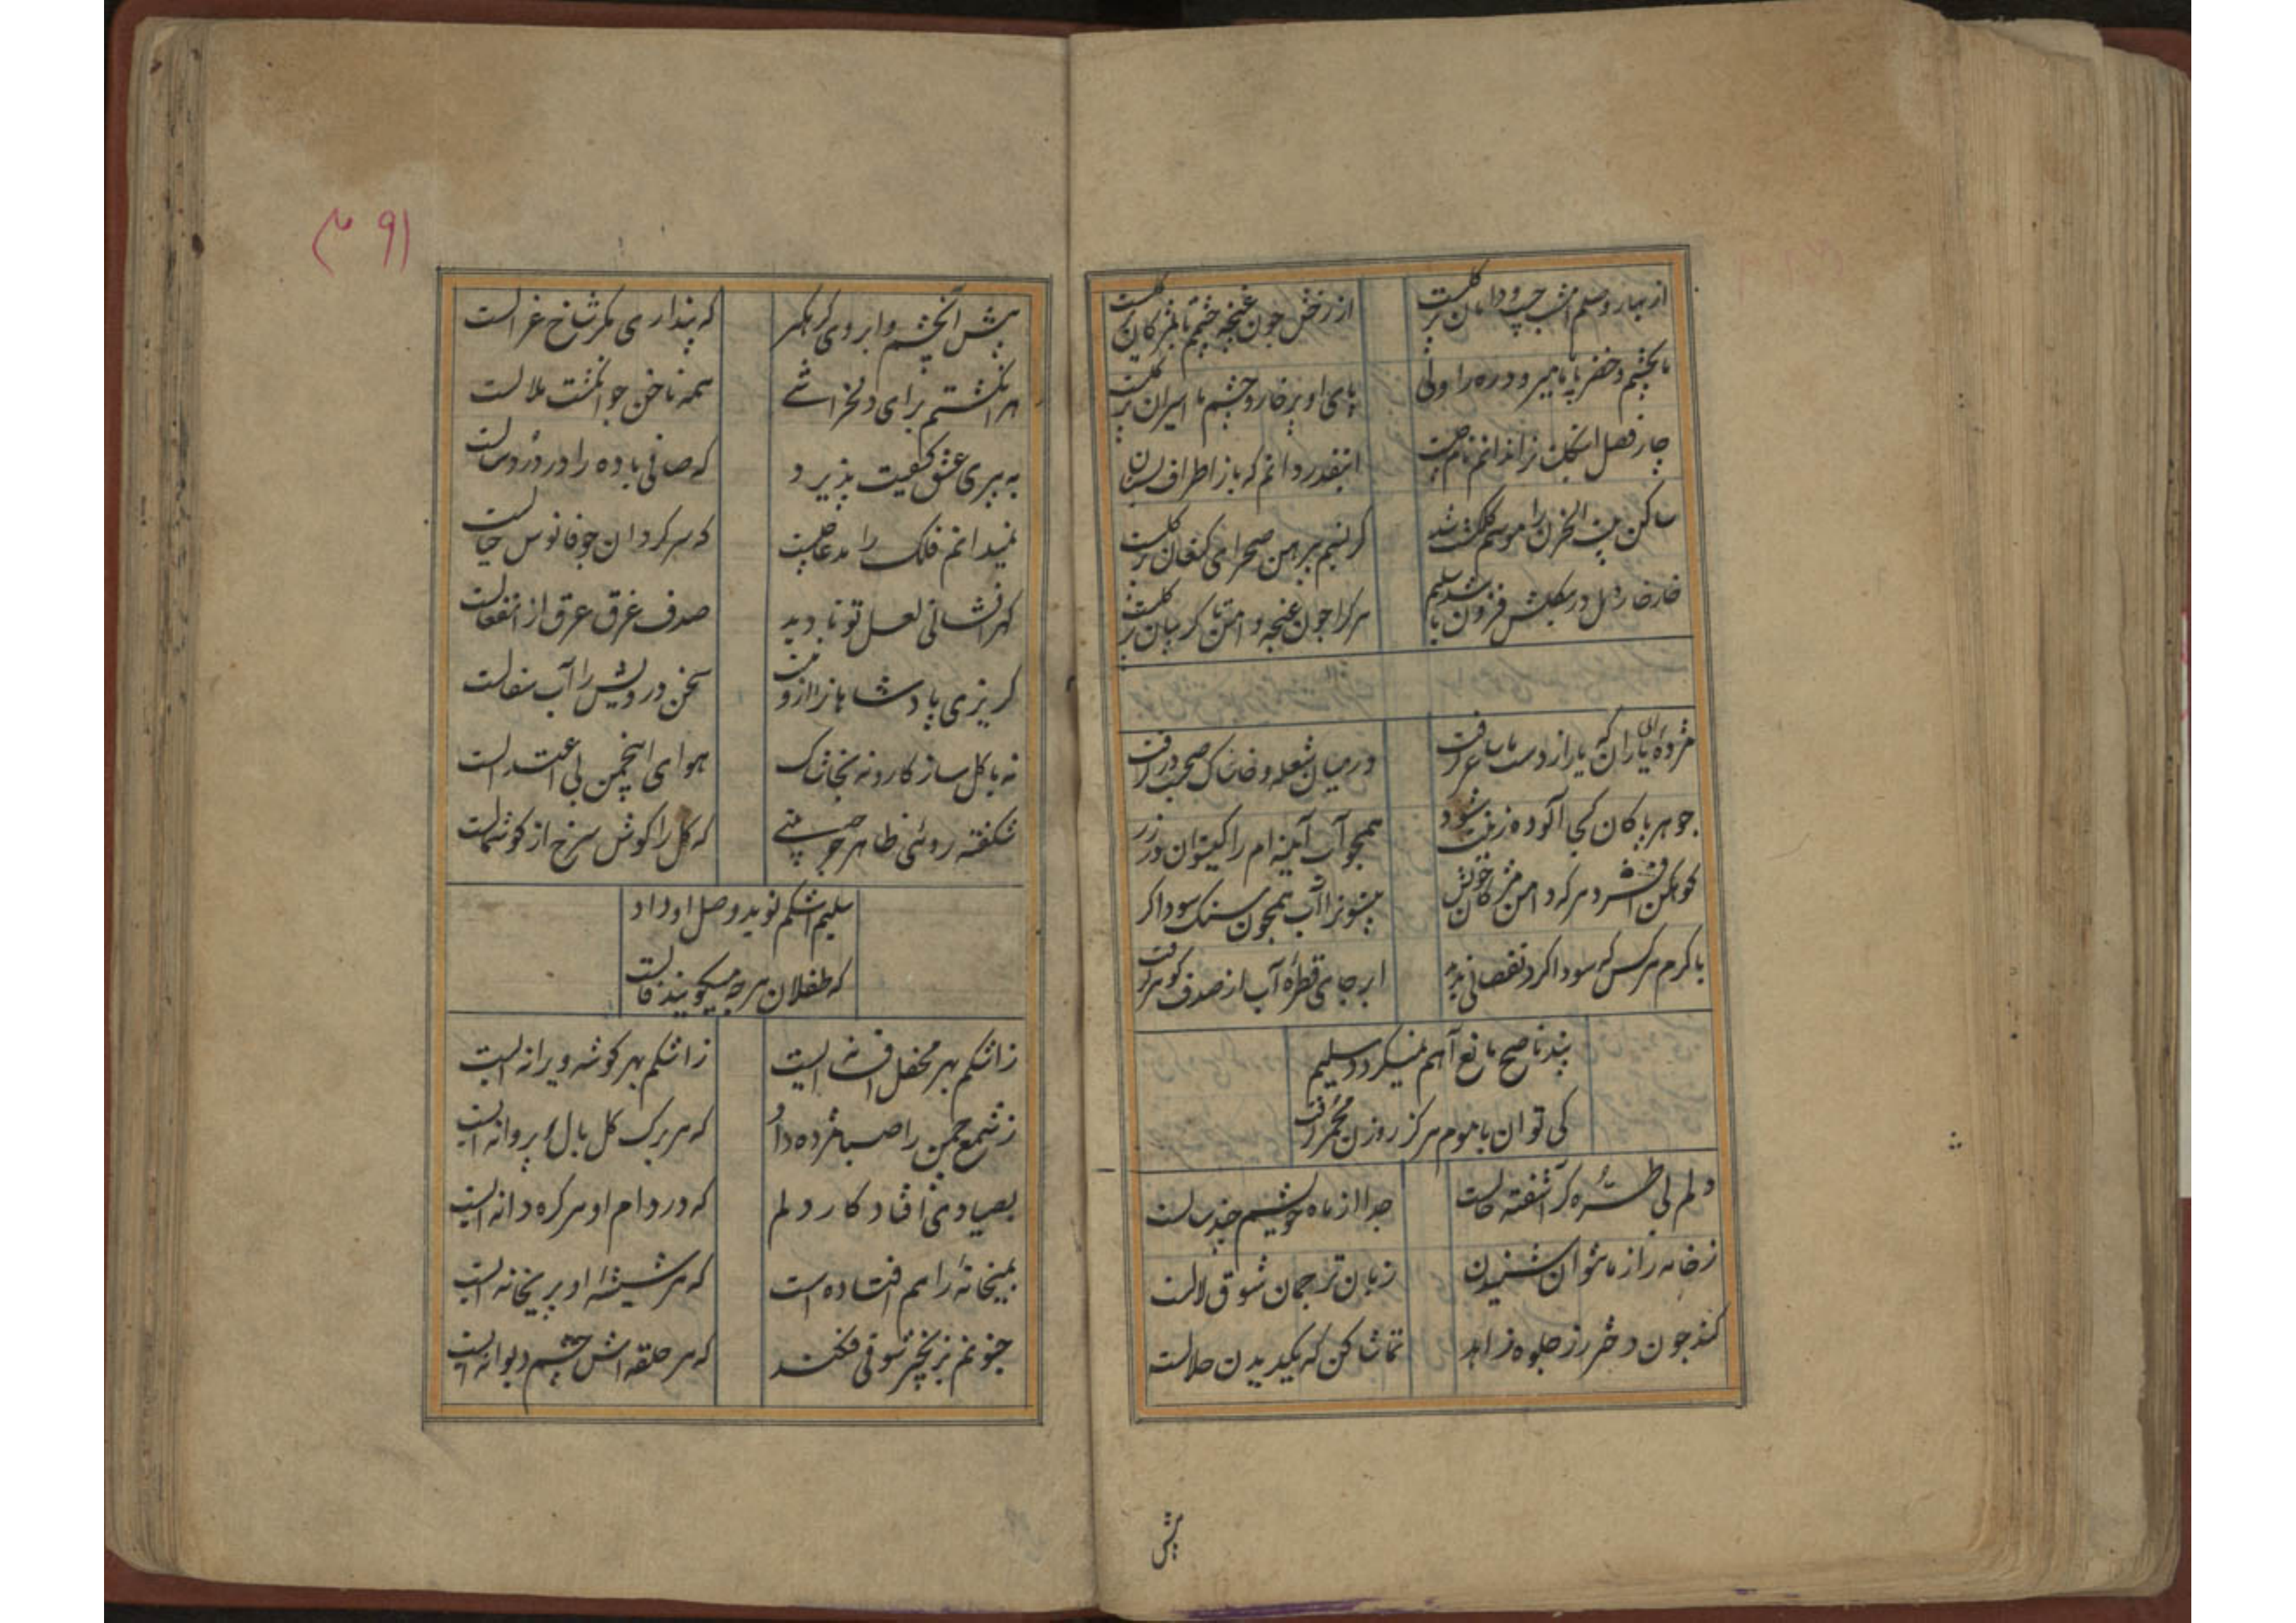 از بهار وصلم امشب جیب و دامان پر گلست
از رخش چون غنچه چشمم تا بمژگان پر گلست
ما بچشم و خضر با پا میرود ره را ولی
پای او پر خار و چشم ما اسیران پر گلست
چار فصل
اینقدر دانم که باز اطراف بستان
ساکن بیت الحزن را موسم گلگشت شد
کز نسیم پیرهن صحرای کنعان پر گلست
خار خار دل در فزون باشد سلیم
هر کرا چون غنچه دامن تا گریبان پر گلست
مژده ای یاران که یار از دست ما ساغر گرفت
در میان شعله و خاشاک صحبت در گرفت
جوهر پاکان کجا آلوده زینت شود
همچو آب آینه ام را کیتوان در زر گرفت
کوهکن افشرد هر گه دامن مژگان خویش
آب همچون سنک سودا کر
با کرم هر کس که سودا کرد نقصانی ندید
ابر جای قطره آب از صدف گوهر گرفت
پند ناصح مانع آهم نمیگردد سلیم
کی توان با موم هرگز روزن مجمر گرفت
دلم بی طره کز آشفته حالست
جدا از ماه خویشم چند سالست
ز خامه راز ما نتوان شنیدن
زبان ترجمان شوق لالست
کند چون دختر رز جلوه زاهد
تماشا کن که یک دیدن حلالست
پیش
۳۹۱
پیش آن چشم و ابروی
که پنداری مگر شاخ غزالست
هر انگشتم برای دلخراشی
همه ناخن چو انگشت ملالست
به پیری عشق کیفیت پذیرد
که صافی باده را در درد سالست
نمیدانم فلک را مدعا چیست
که سرگردان چو فانوس خیالست
گهر افشانی لعل تو تا دید
صدف غرق عرق از انفعالست
گریزی پادشاهانرا ازو نیست
سخن درویش را آب سفالست
نه با گل سازگار و نه بخاشاک
هوای این چمن بی اعتدالست
شکفته روئی ظاهر چه بینی
که گل را گوش سرخ از گوشمالست
سلیم اشکم نوید وصل او داد
که طفلان هر چه میگویند فالست
ز اشکم بهر محفل افسانه ایست
ز اشکم بهر گوشه ویرانه ایست
ز شمع چمن را صبا مژده داد
که هر برگ گل بال پروانه ایست
بصیادی افتاد کار دلم
که در دام او هر گره دانه ایست
بمیخانه راهم افتاده است
که هر شیشه او پریخانه ایست
جنونم بزنجیر شوقی فکند
که هر حلقه اش چشم دیوانه ایست